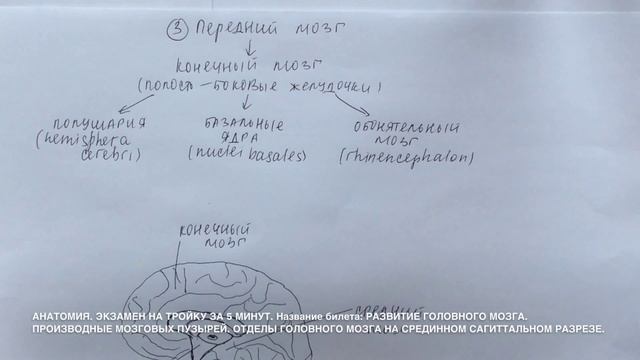 ③ Передний мозг
конечный мозг
(полость – боковые желудочки)
полушария
(hemisphera
cerebri)
базальные
ядра
(nuclei basales)
обонятельный
мозг
(rhinencephalon)
конечный
мозг
средний
АНАТОМИЯ. ЭКЗАМЕН НА ТРОЙКУ ЗА 5 МИНУТ. Название билета: РАЗВИТИЕ ГОЛОВНОГО МОЗГА.
ПРОИЗВОДНЫЕ МОЗГОВЫХ ПУЗЫРЕЙ. ОТДЕЛЫ ГОЛОВНОГО МОЗГА НА СРЕДИННОМ САГИТТАЛЬНОМ РАЗРЕЗЕ.